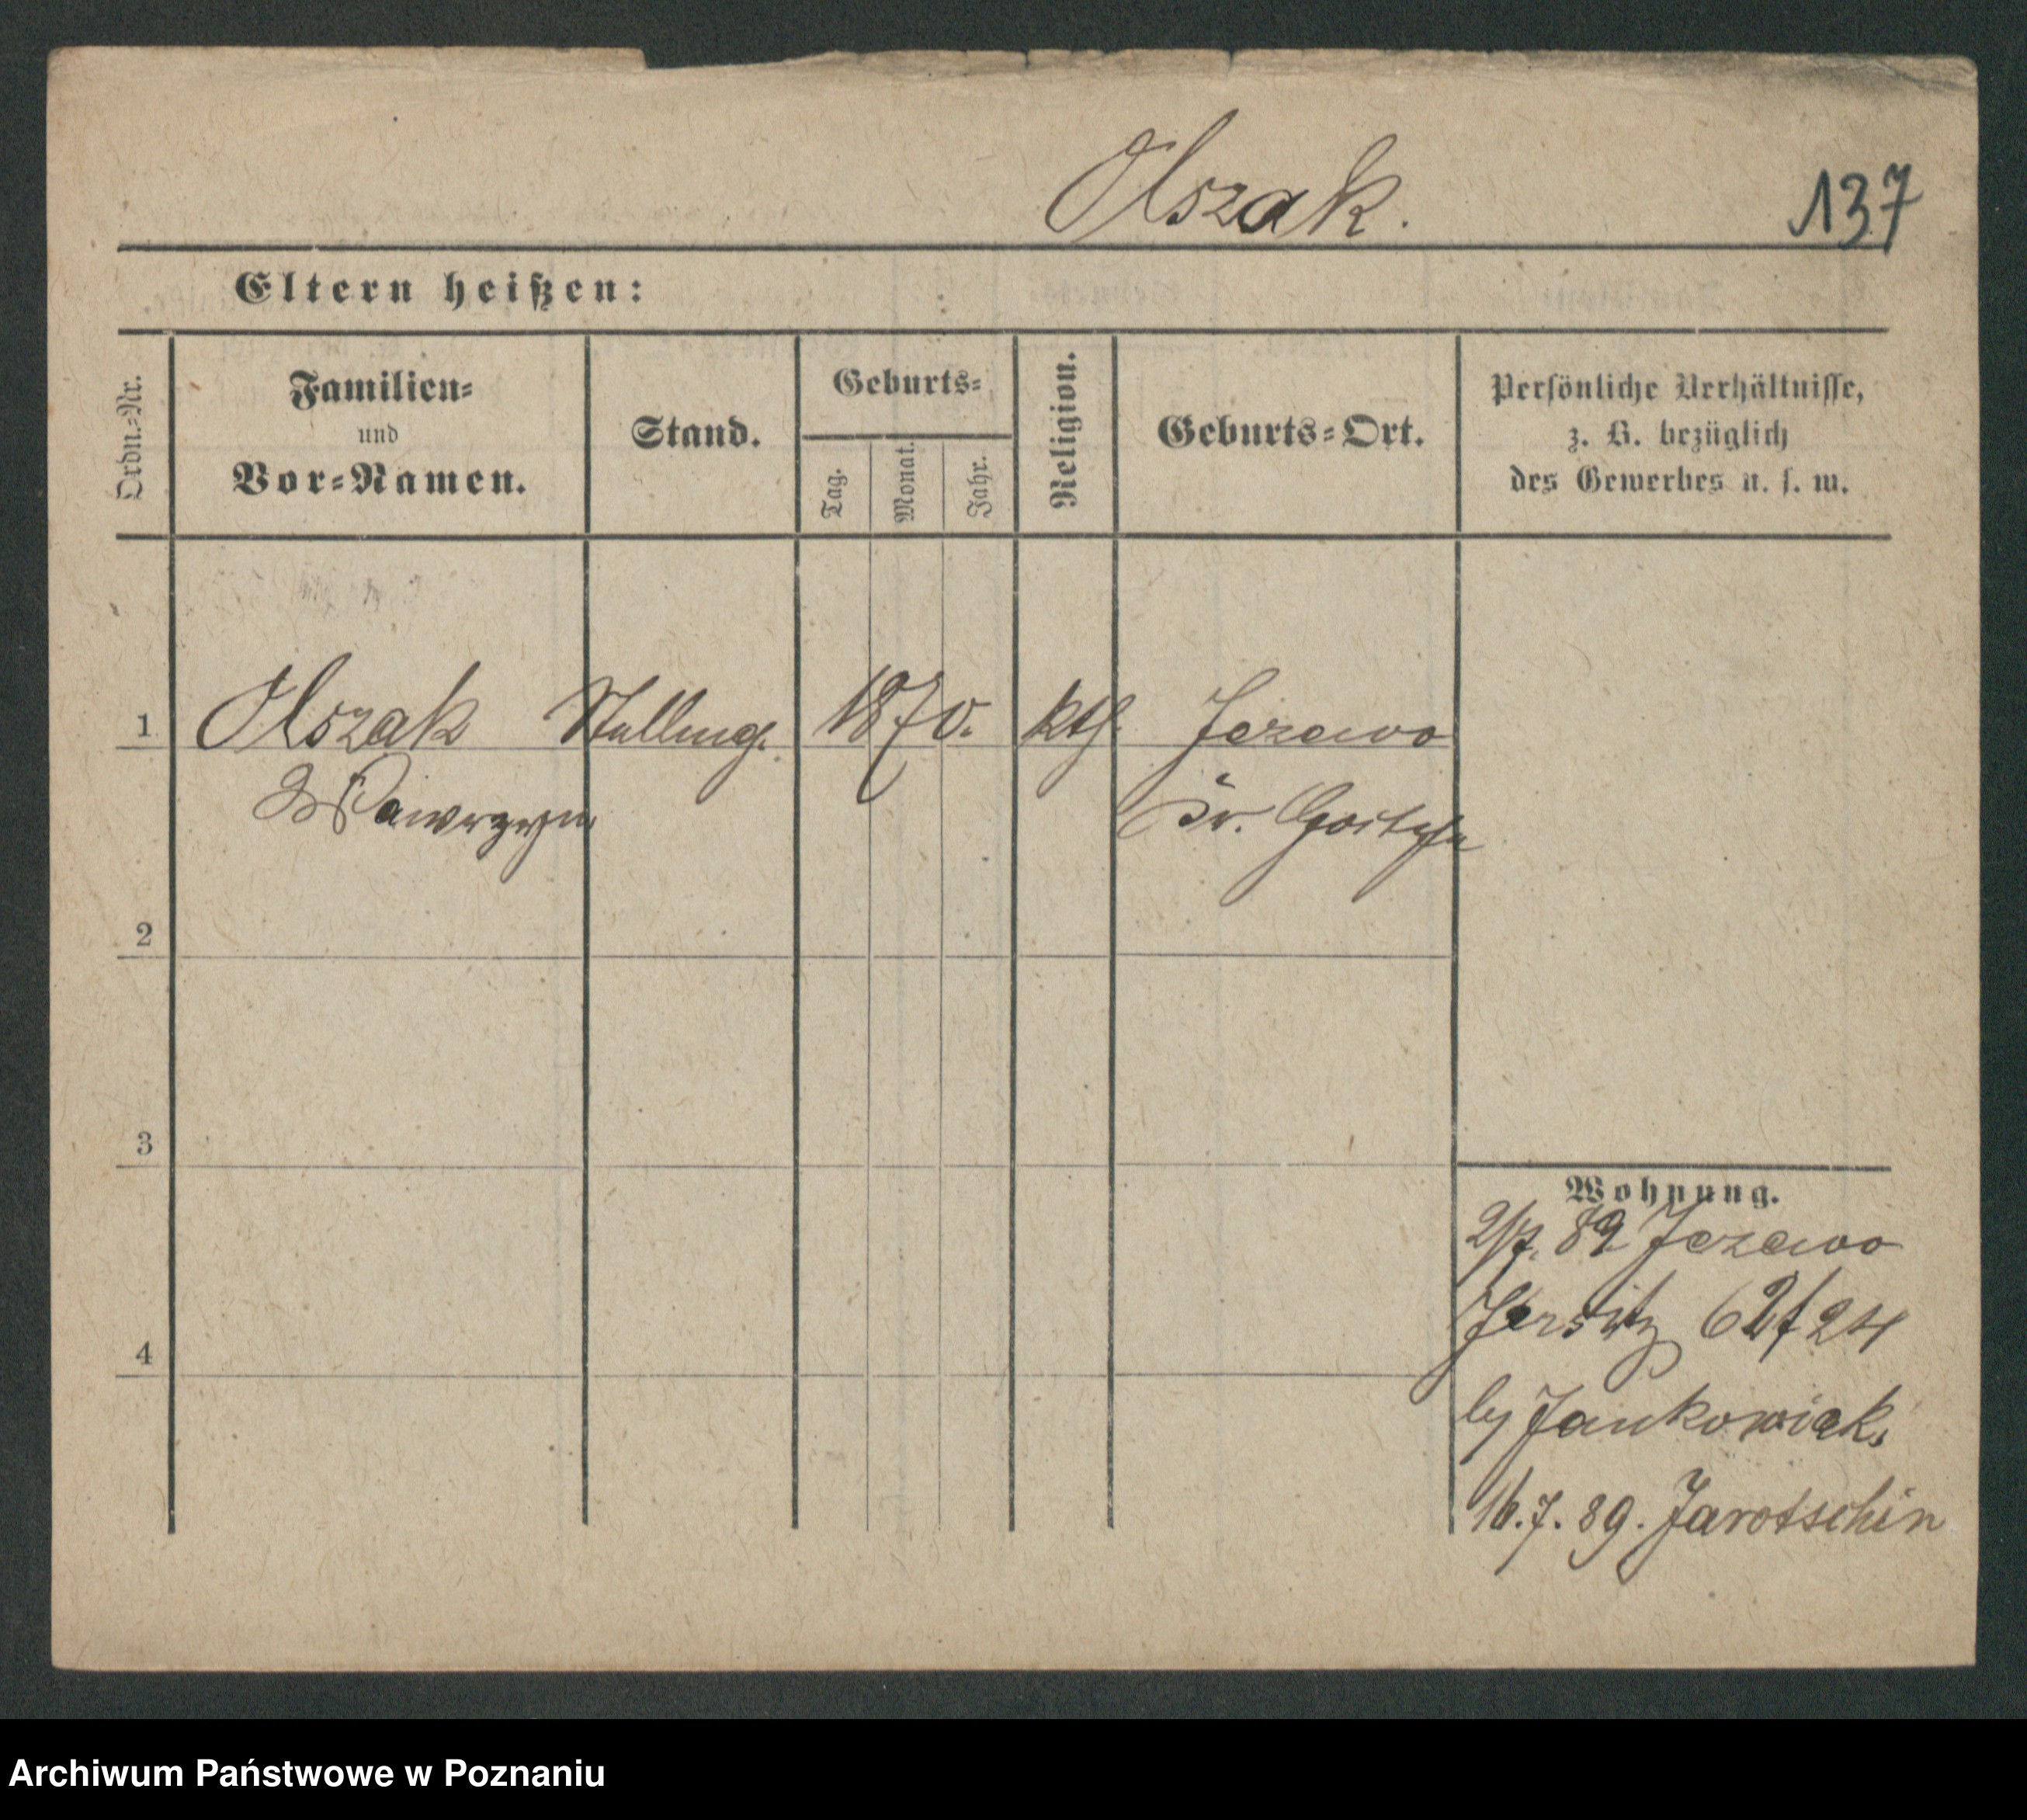 Olszak.
137
Eltern heißen:
Ordn.=Nr.
Familien=
und
Vor=Namen.
Stand.
Geburts=
Tag.
Monat.
Jahr.
Religion.
Geburts=Ort.
Persönliche Verhältnisse,
z. B. bezüglich
des Gewerbes u. s. w.
1 Olszak 1870. kth. Jezewo
Wawrzyn
Kr.
2
3
4
Wohnung.
2/7. 89 Jezewo
Jersitz 62/24
by Jankowiak
16.7.89. Jarotschin
Archiwum Państwowe w Poznaniu